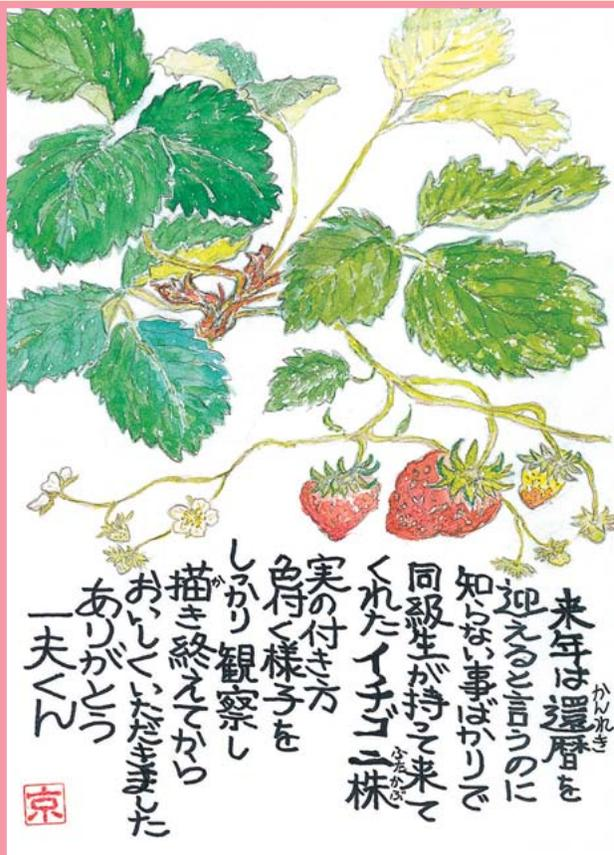 来年は還暦を
かんれき
迎えると言うのに
知らない事ばかりで
同級生が持って来て
くれたイチゴ二株
ふたかぶ
実の付き方
色付く様子を
しっかり観察し
描き終えてから
か
おいしくいただきました
ありがとう
一夫くん
京